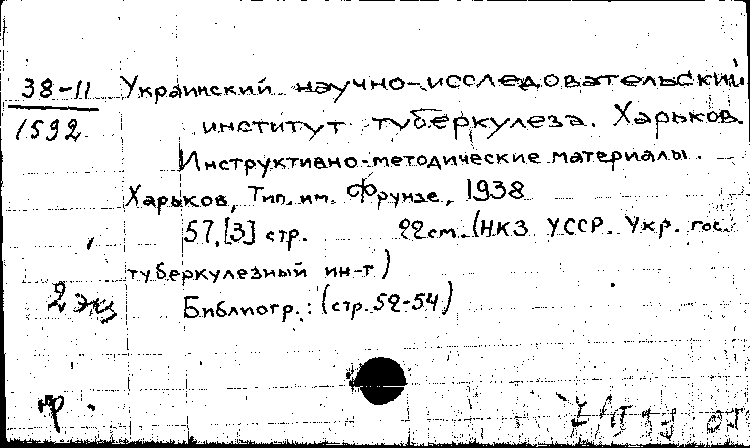 38-11
1592
Украинский научно-исследовательский
институт туберкулеза. Харьков.
Инструктивно-методические материалы.
Харьков, Тип. им. Фрунзе, 1938
57,[3] стр. 22см. (НКЗ УССР. Укр. гос.
туберкулезный ин-т)
2 экз
Библиогр.: (стр. 52-54)
пр.